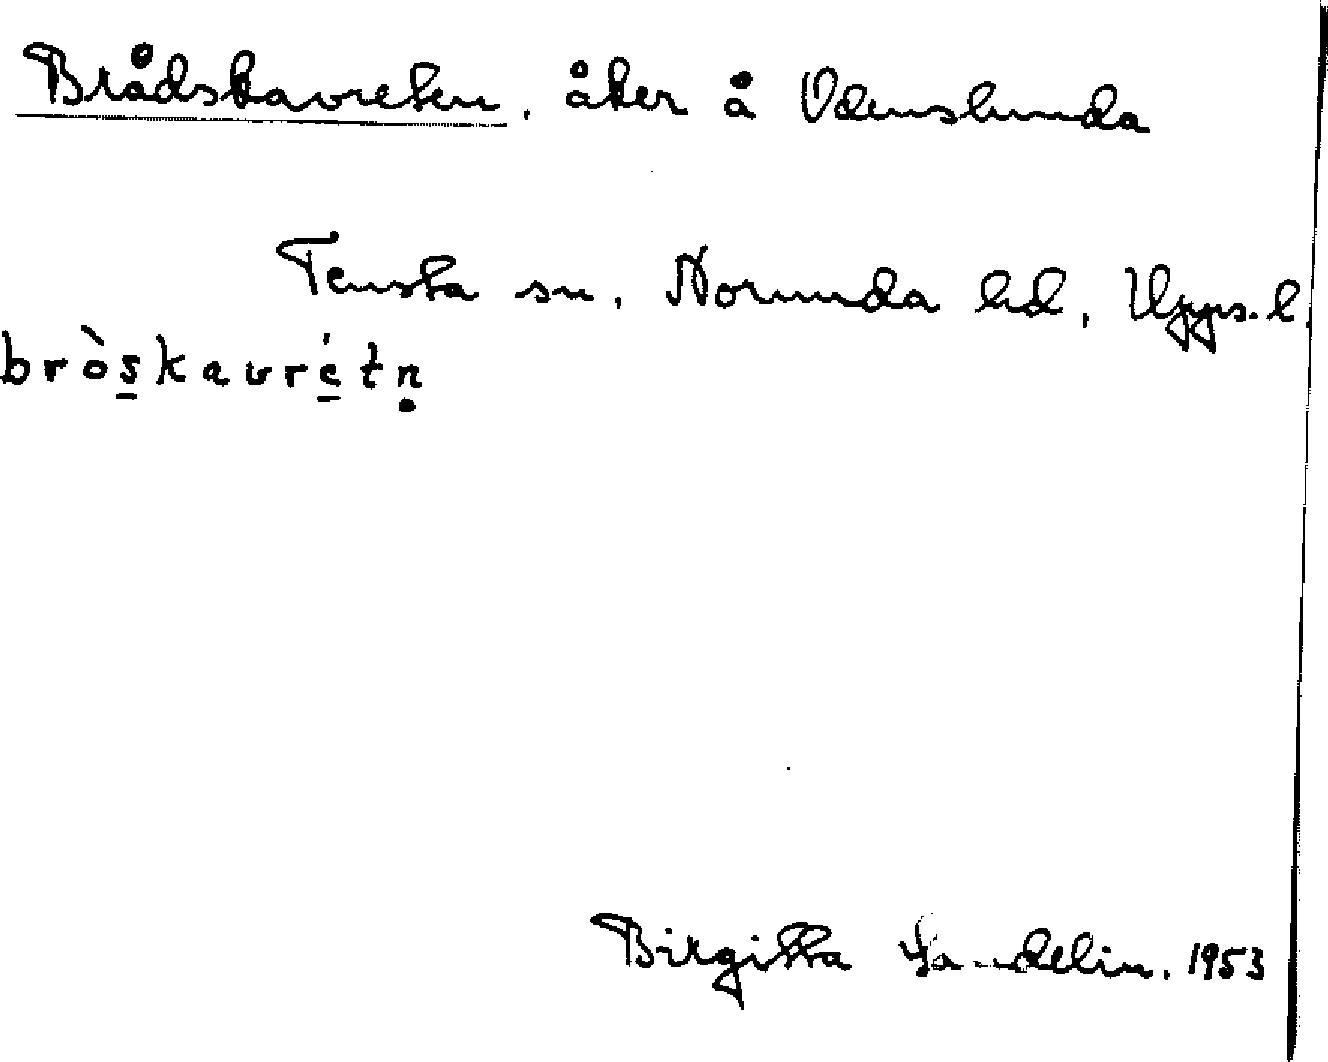 Brådskavreten, åker å Odenslunda
Tensta sn, Norunda hd, Upps. l.
bròs̱kavré̱tṇ
Birgitta Sandelin. 1953